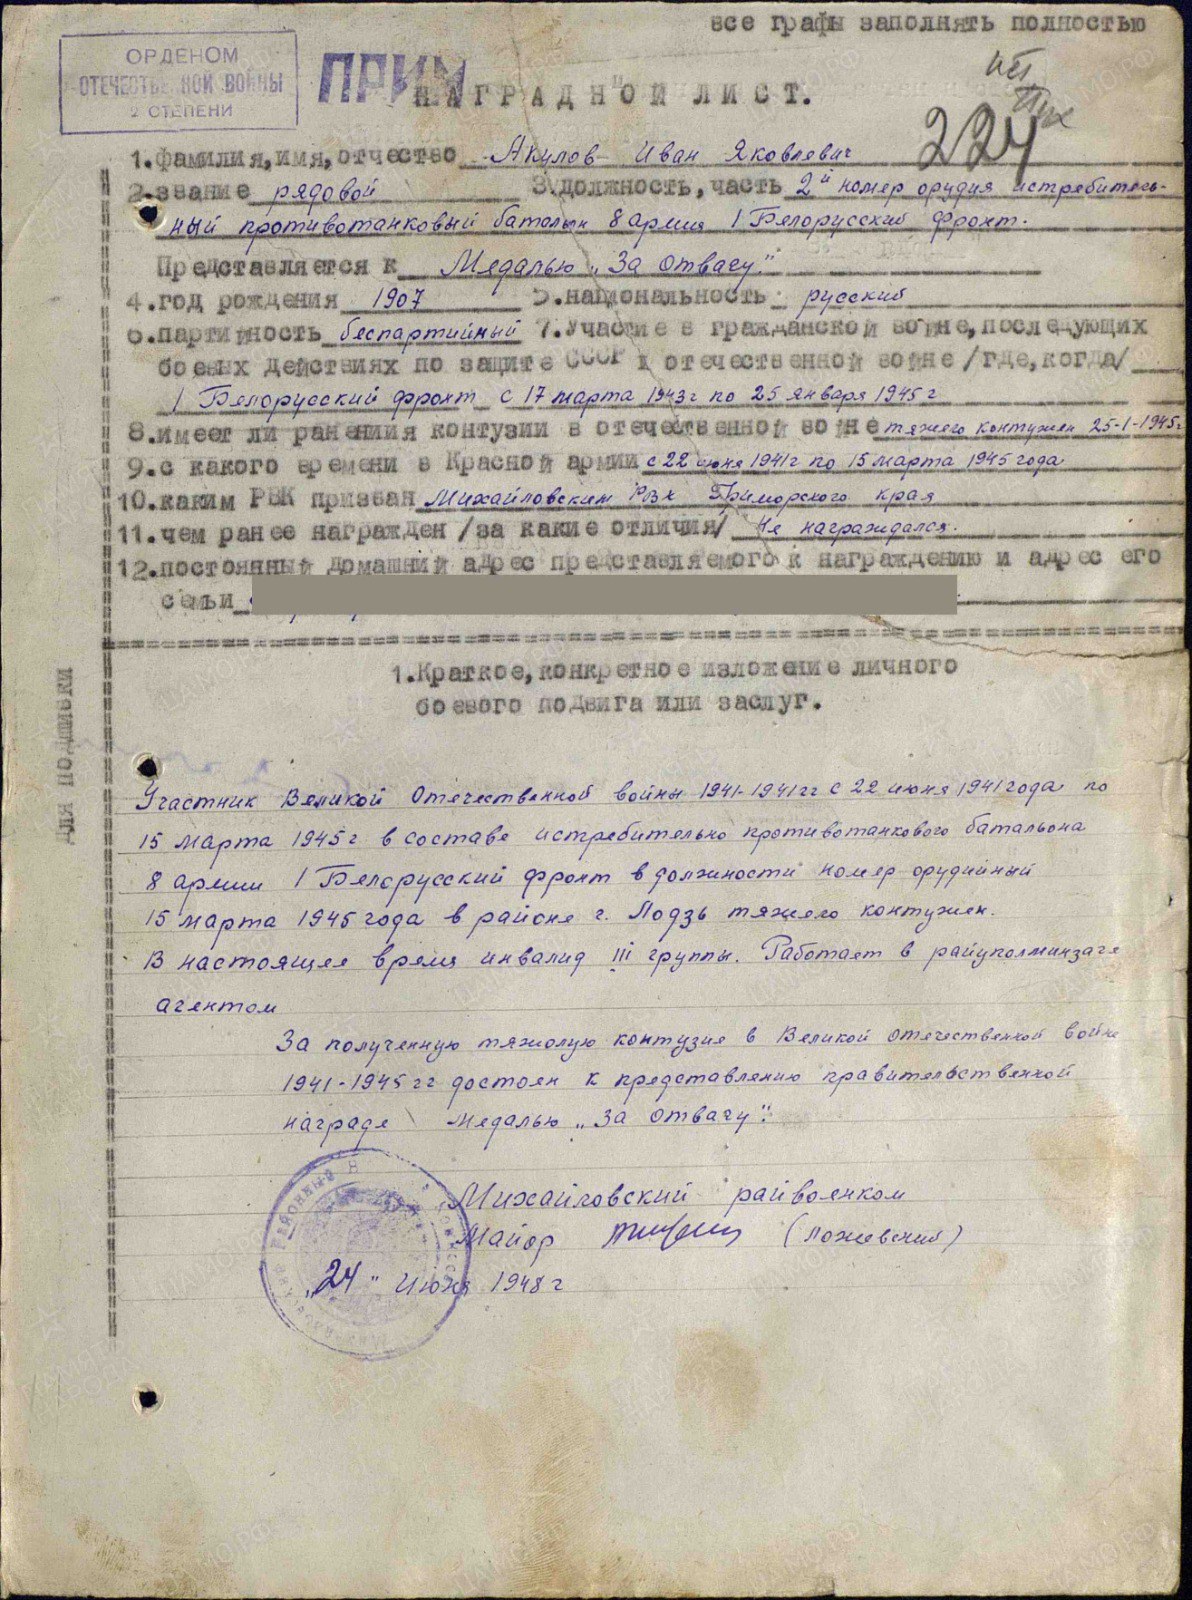 все графы заполнять полностью
ОРДЕНОМ
ОТЕЧЕСТВЕННОЙ ВОЙНЫ
2 СТЕПЕНИ
ПРИМ
НАГРАДНОЙ ЛИСТ.
224
1.фамилия,имя,отчество Акулов Иван Яковлевич
2.звание рядовой 3.должность,часть 2й номер орудия истребитель-
ный противотанковый батальон 8 армия 1 Белорусский фронт.
Представляется к Медалью „За отвагу."
4.год рождения 1907 5.национальность русский
6.партийность беспартийный 7.Участие в гражданской войне,последующих
боевых действиях по защите СССР и отечественной войне/где,когда/
1 Белорусский фронт с 17 марта 1943г по 25 января 1945г
8.имеет ли ранениия контузии в отечественной войне тяжего контужен 25-1-1945г
9.с какого времени в Красной армии с 22 июня 1941г по 15 марта 1945 года
10.каким РВК призван Михайловским РВК Приморского края
11.чем ранее награжден/за какие отличия/ Не награждался.
12.постоянный домашний адрес представляемого к награждению и адрес его
семьи
1.Краткое,конкретное изложение личного
боевого подвига или заслуг.
для подшивки
Участник Великой Отечественной войны 1941-1941гг с 22 июня 1941 года по
15 марта 1945г в составе истребительно противотанкового батальона
8 армии 1 Белорусский фронт в должности номер орудийный
15 марта 1945 года в районе г. Лодзь тяжего контужен.
В настоящее время инвалид III группы. Работает в райуполминзаге
агентом
За полученную тяжолую контузие в Великой отечественной войне
1941-1945гг достоен к представлению правительственной
награде Медалью „За отвагу".
Михайловский райвоенком
Майор (Ложевский)
„24" июня 1948г